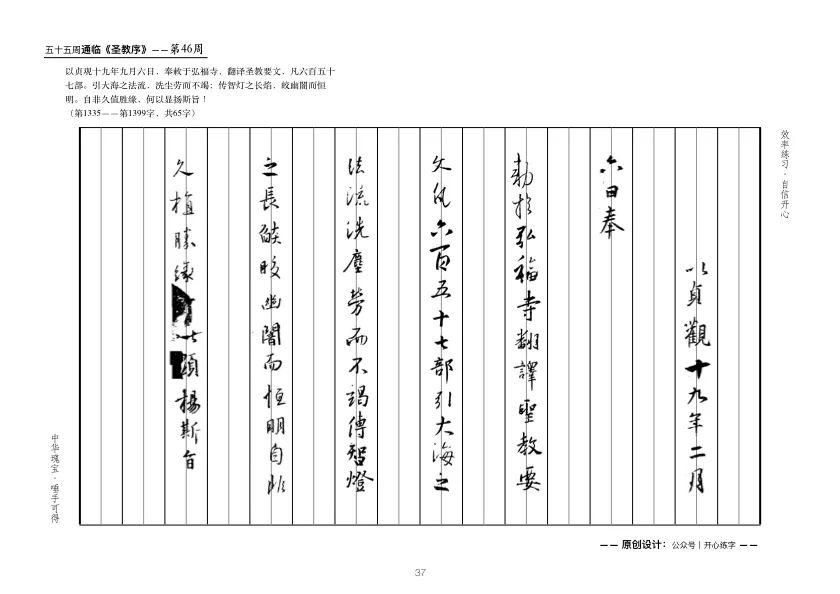 五十五周通临《圣教序》——第46周
以贞观十九年九月六日，奉敕于弘福寺，翻译圣教要文，凡六百五十
七部。引大海之法流，洗尘劳而不竭；传智灯之长焰，皎幽闇而恒
明。自非久值胜缘，何以显扬斯旨！
（第1335——第1399字，共65字）
效率练习·自信开心
以貞觀十九年二月
六日奉
勅於弘福寺翻譯聖教要
文凡六百五十七部引大海之
法流洗塵勞而不竭傳智燈
之長燄皎幽闇而恒明自非
久植勝緣何以顯揚斯旨
中华瑰宝·唾手可得
——原创设计：公众号｜开心练字——
37